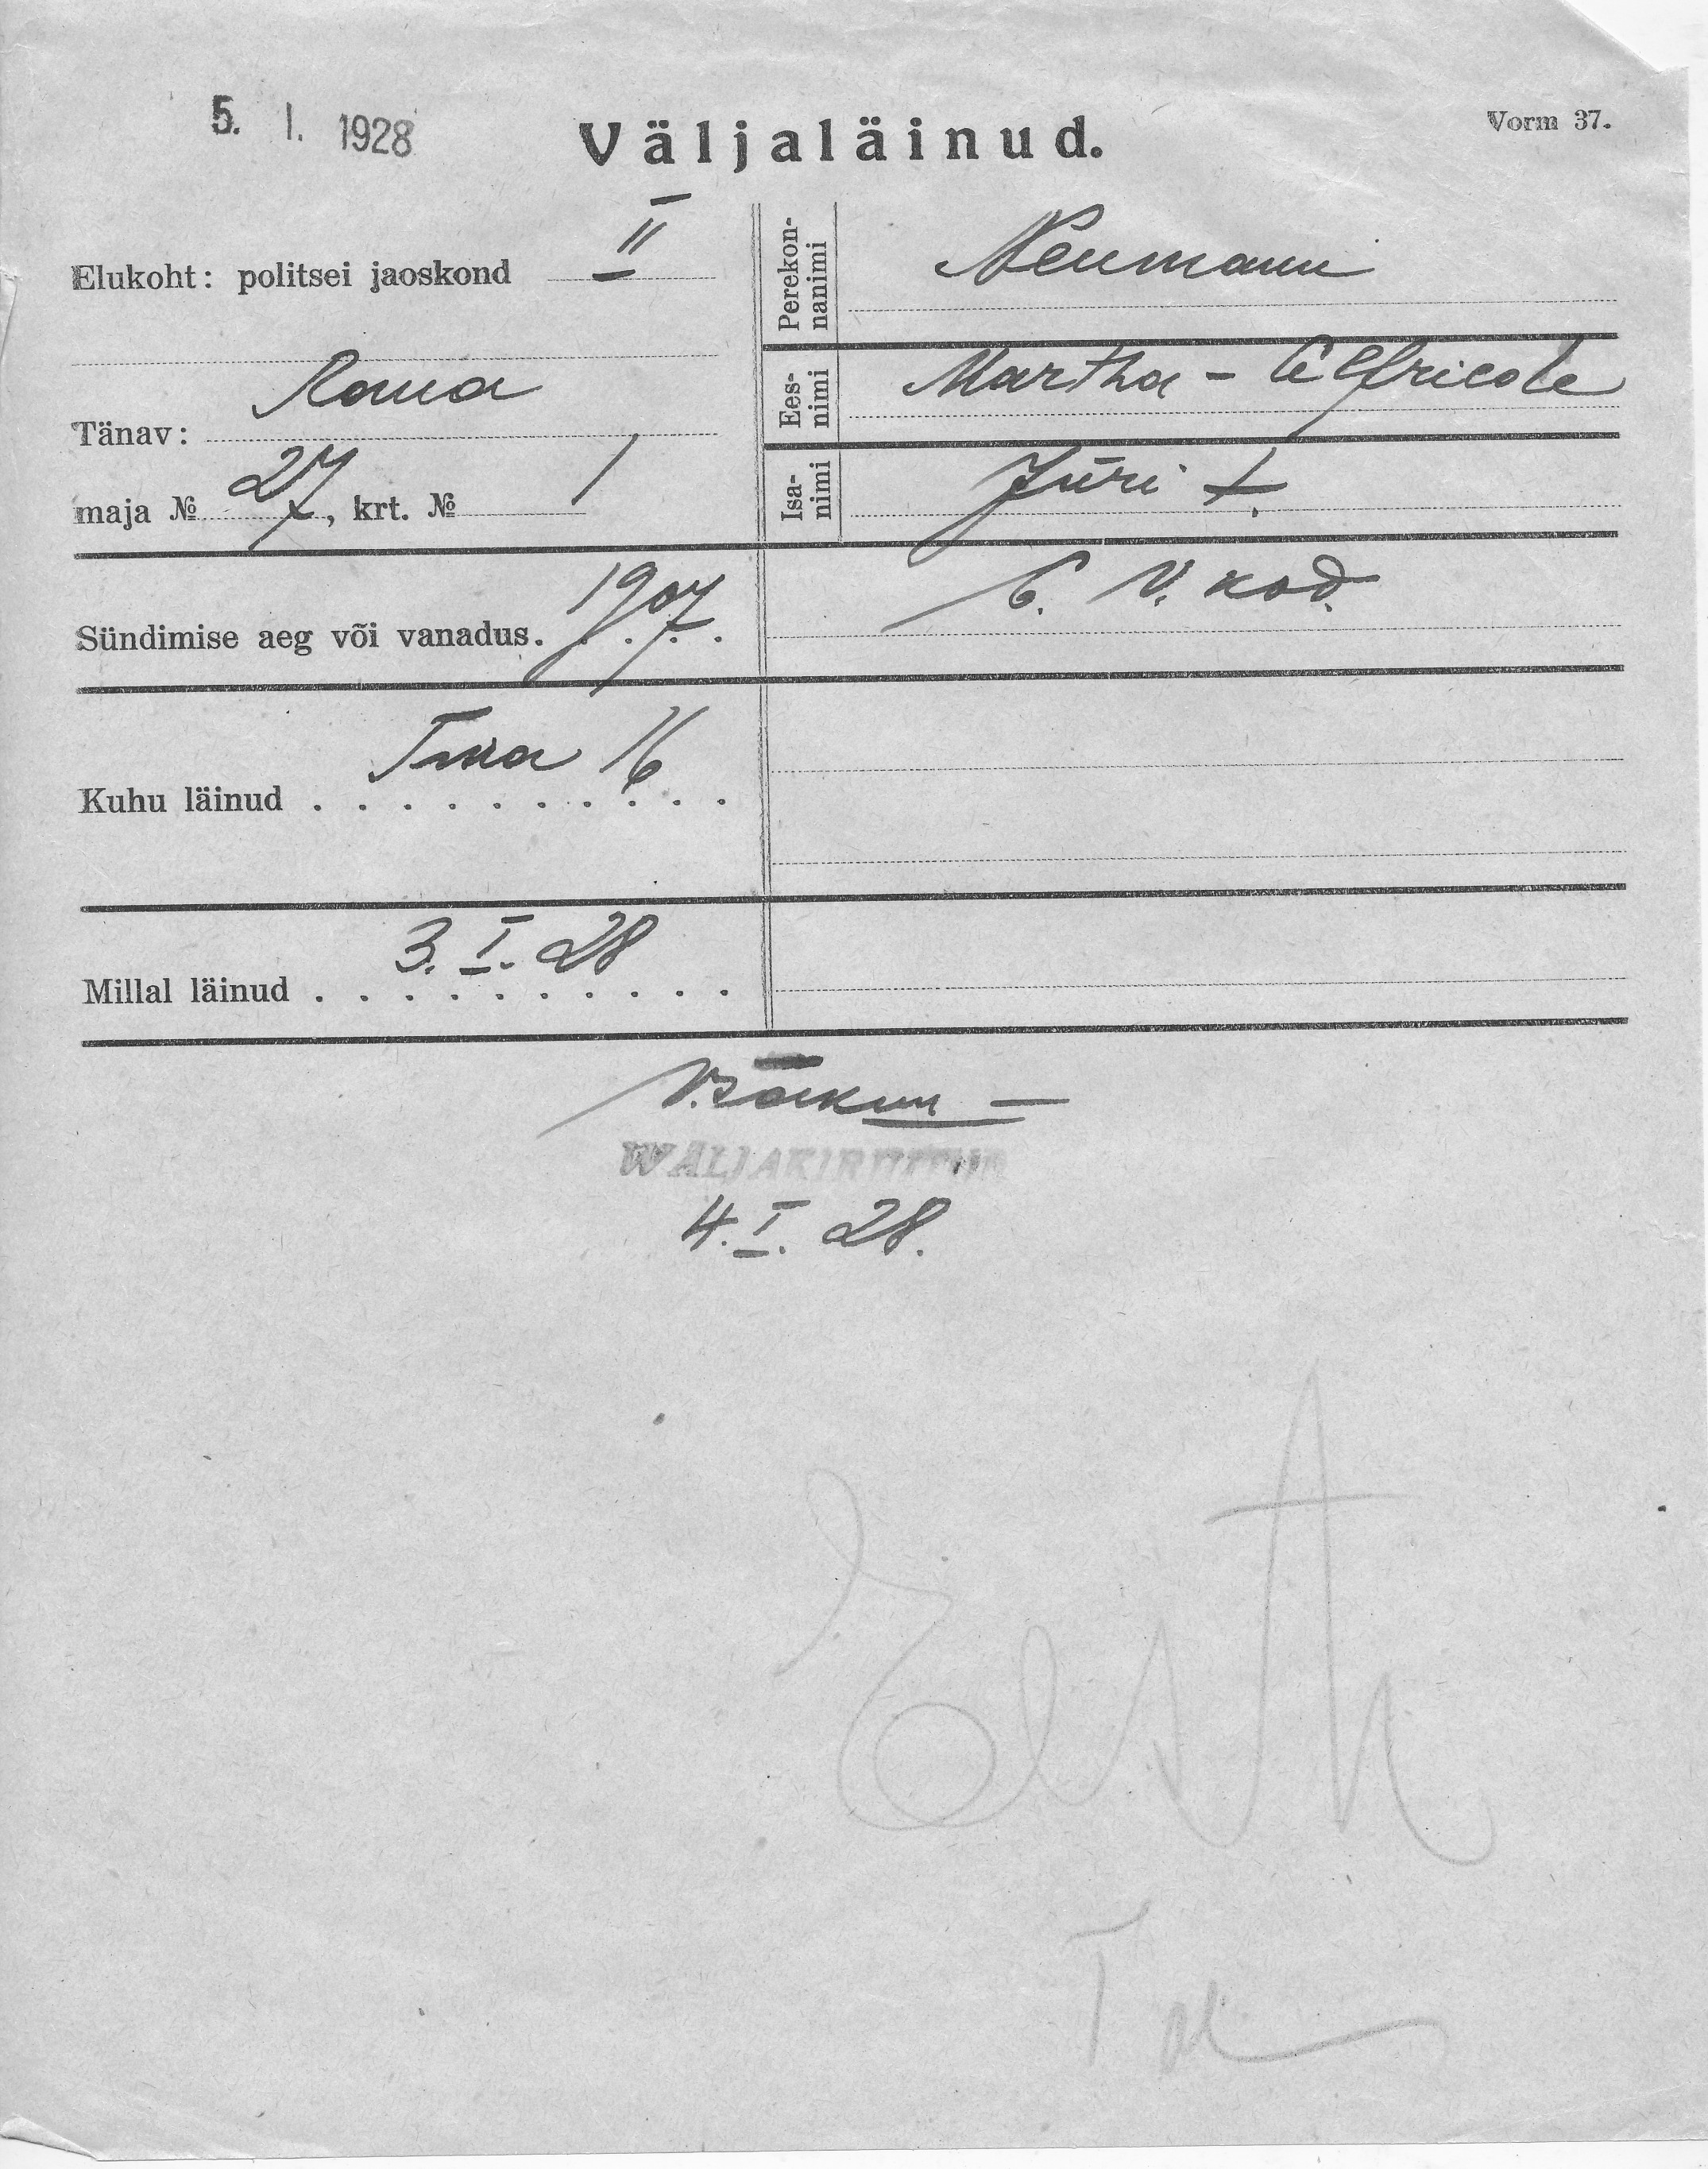 5. I. 1928
Väljaläinud.
Vorm 37.
Elukoht: politsei jaoskond II
Tänav: Raua
maja № 27, krt. № 1
Perekonnanimi
Neumann
Eesnimi
Martha - Elfriede
Isanimi
Jüri †.
Sündimise aeg või vanadus. 1907
E. V. kod.
Kuhu läinud . . . . . . . . . . 16
Millal läinud . . . . . . . . . . 3. I. 28
WÄLJAKIRJUTUD
4. I. 28.
Eest